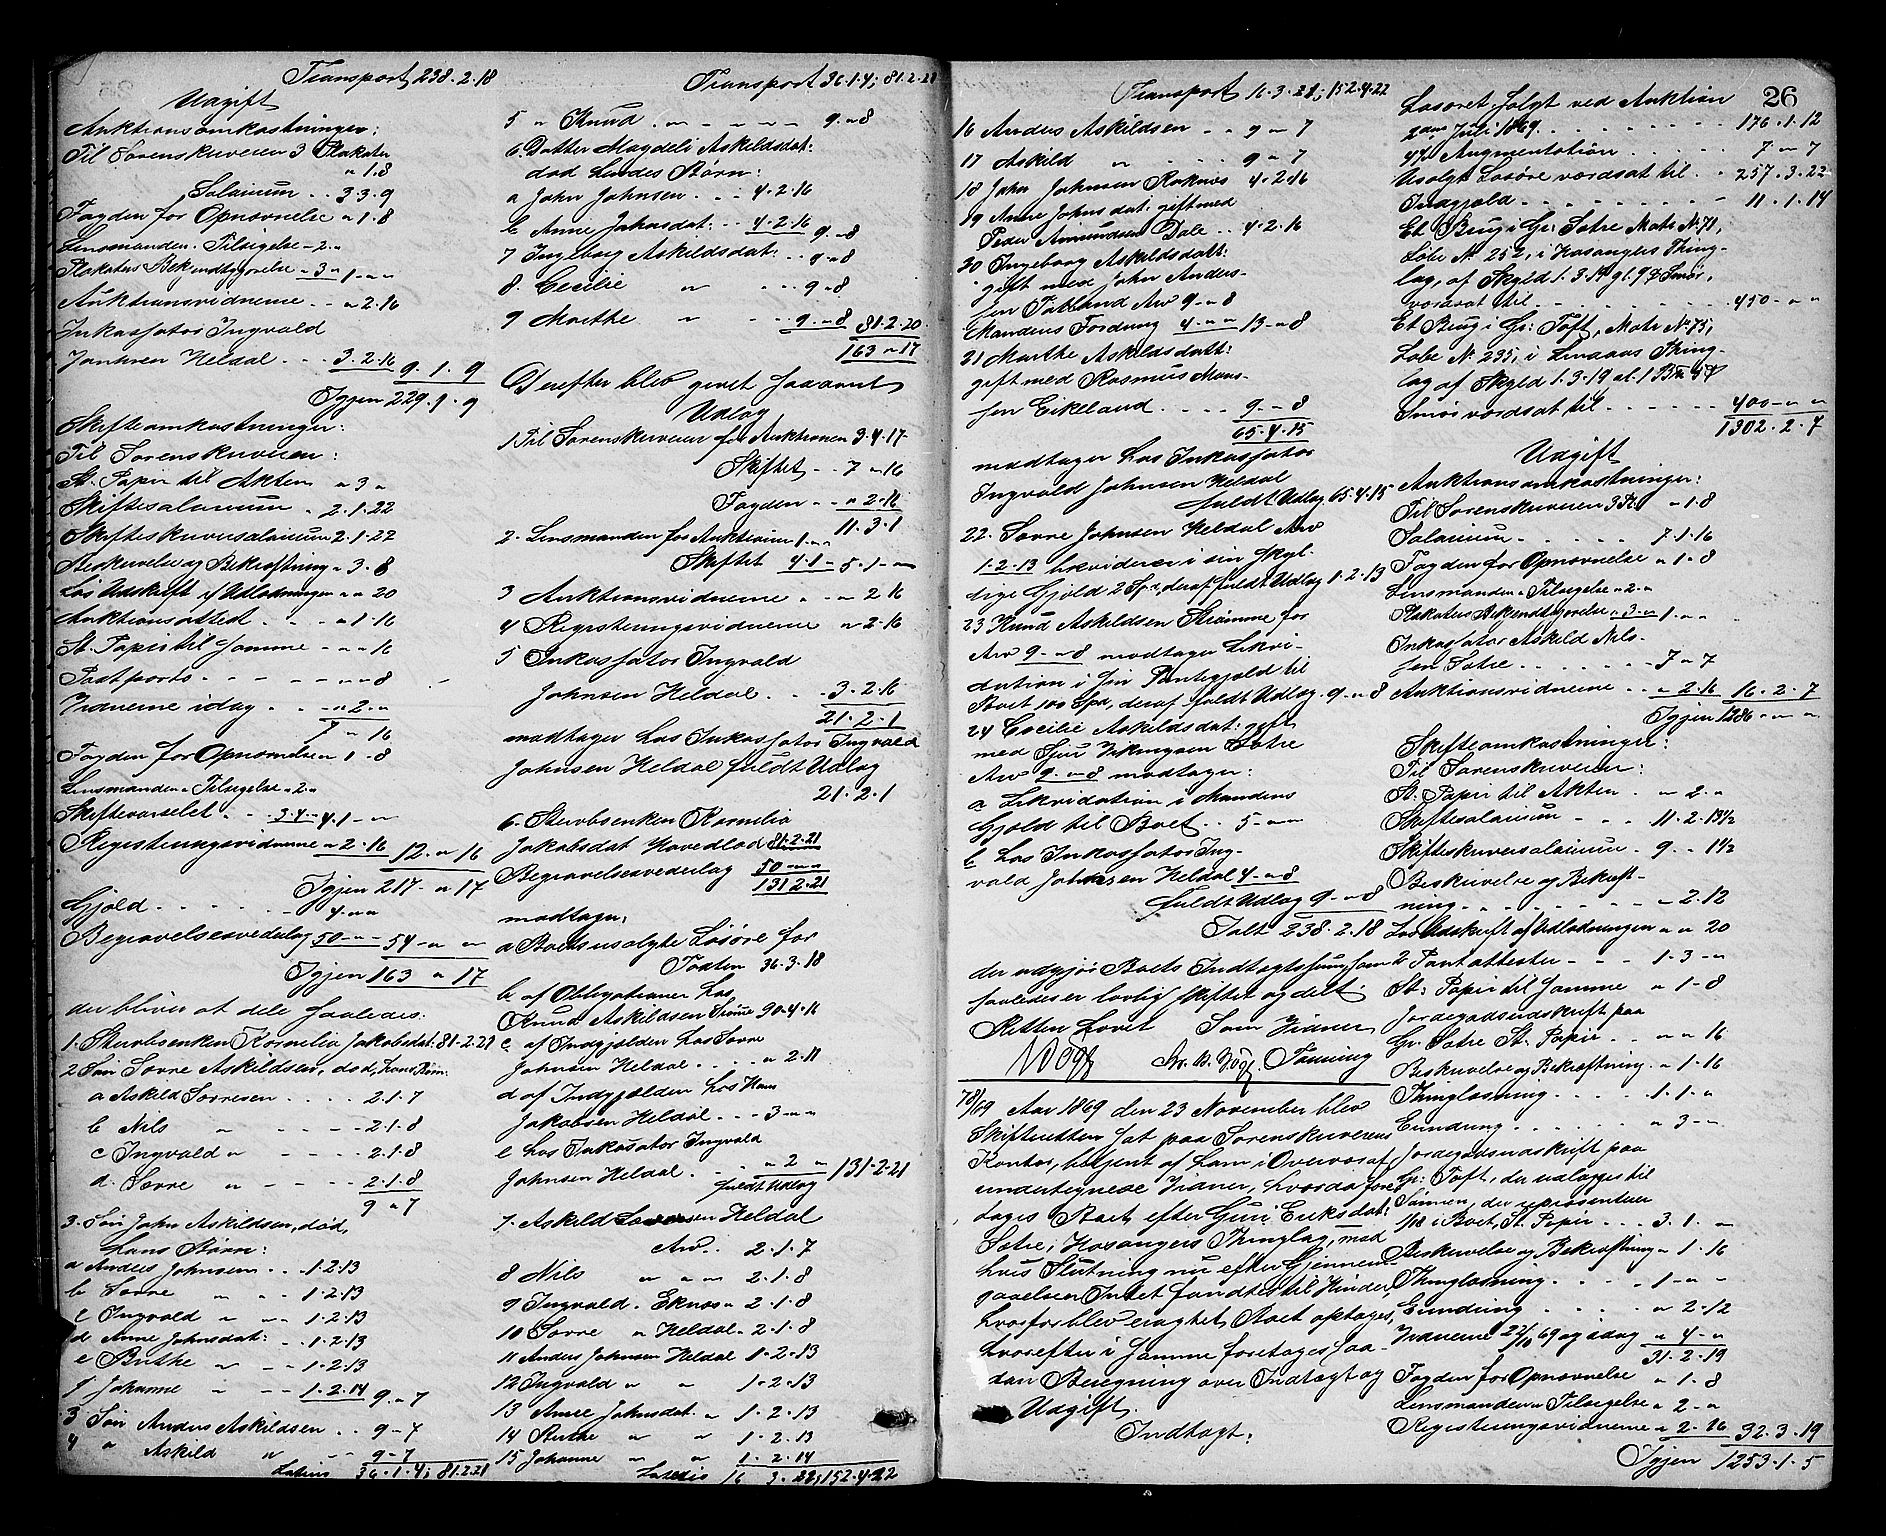 Transport 238.2.18
Udgift
Auktionsomkostninger:
Til Sorenskriveren 3 Plakater
" 1.8
Salairium .. 3.3.9
Fogden for Opnævnelse " 1.8
Lensmanden. Tilsigelse " 2. "
Plakatens Bekjendtgjørelse " 3 " 1 - " - "
Auktionsvidnerne .. " 2.16
Inkassator Ingvald
Johnsen Heldal ... 3.2.16 9.1.9
Igjen 229.1.9
Skifteomkostninger:
Til Sorenskriveren:
St. Papir til Akten " 3 "
Skiftesalairium " 2.1.22
Skifteskriversalairium 2.1.22
Beskrivelse og Bekræftning " 3.8
Løs Udskrift af Udlodningen " " 20
Auktionsattest . . - " 1.16
St. Papir til Samme - " " 16
Postporto . - - - - " " 8
Vidnerne idag . . - " 2 - "
7 " 16
Fogden for Opnævnelsen " 1 - 8
Lensmanden " Tilsigelse " 2 "
Skiftevarselet . . 3.4 - " 4.1 - "
Registreringsvidnerne " 2.16 12 - " 16
Igjen 217 - " 17
Gjæld . . . . . 4 - " "
Begravelsesvederlag 50 - " - 54 - " - "
Igjen 163 " 17
der bliver at dele saaledes:
1. Stervboenken Kornelia Jakobsdat: 81.2.21
2 Søn Sovre Askildsen, død, hans Børn:
a Askild Sovresen . . . . 2.1.7
b Nils " - - - - 2.1.8
c Ingvald " - - - - 2.1.8
d. Sovre " - - - 2.1.8
9 " 7
3. Søn John Askildsen, død,
hans Børn:
a Anders Johnsen . . . 1.2.13
b Sovre " " . 1.2.13
c Ingvald " " - 1.2.13
d Anne Johnsdat: . . 1.2.13
e Brithe " " - - 1.2.13
f Johanne " - - 1.2.14 9 " 7
3 Søn Anders Askildsen . . 9 - 7
4 " Askild " - 9 - 7
Lateris 36.1.4; 81.2.21
Transport 36.1.4; 81.2.21
5 " Knud . - - - - 9 - " 8
6 Datter Magdeli Askildsdat:
død hendes Børn:
a John Johnsen . . . 4.2.16
b Anne Johnsdat: . . 4.2.16 9 - " 8
7 Ingeborg Askildsdat: . . 9 - " 8
8. Cecilie " . . . 9 - " 8
9 Marthe " - . - 9 - " 8 81.2.20
163 " 17
Derefter blev gjort saadant
Udlæg
1. Til Sorenskriveren for Auktionen 3.4.17
Skiftet . . 7 " 16
Fogden . . " 2.16
11.3.1
2. Lensmanden for Auktionen 1 - " "
Skiftet 4.1 - 5.1 - "
3 Auktionsvidnerne " - " 2 16
4 Registreringsvidnerne " 2.16
5 Inkassator Ingvald
Johnsen Heldal . . . 3.2.16
21.2.1
modtager hos Inkassator Ingvald
Johnsen Heldal fuldt Udlæg
21.2.1
6. Stervboenken Kornelia
Jakobsdat Hovedlod 81.2.21
Begravelsesvederlag 50 - " "
131 2.21
modtager:
a Boets usolgte Løsøre for
Taxten 36.3.18
b af Obligationer hos
Knud Askildsen Strømme 90.4.16
c af Indgjælden hos Sovre
Johnsen Heldal . . . " 2.11
d af Indgjælden hos Hans
Jakobsen Heldal . . . 3 - " "
e hos Inkassator Ingvald
Johnsen Heldal . - . " 2 " 131.2.21
fuldt Udlæg
7. Askild Sovresen Heldal
Arv . . 2.1.7
8 Nils " " " 2.1.8
9 Ingvald. Eknæs " 2.1.8
10 Sovre " Heldal " 2.1.8
11 Anders Johnsen Heldal 1.2.13
12 Ingvald " " 1.2.13
13 Anne Johnsdat. " 1.2.13
14 Brithe " " 1.2.13
15 Johanne " " 1.2.14
Lateris 16 3.21; 152.4.22
Transport 16.3.21; 152.4.22
16 Anders Askildsen . . 9 " 7
17 Askild " . . . 9 " 7
18 John Johnsen Røknæs 4.2.16
19 Anne Johnsdat: gift med
Peder Amundsen Dale . . 4.2.16
20 Ingeborg Askildsdatt:
gift med John Anders-
sen Tatland Arv 9 - " 8
Mandens Fordring 4 - " " 13 - " 8
21 Marthe Askildsdatt:
gift med Rasmus Mons-
sen Eikeland . . . . 9 - " 8
65.4.15
modtager hos Inkassator
Ingvald Johnsen Heldal
fuldt Udlæg 65.4.15
22. Sovre Johnsen Heldal Arv
1.2.13 likviderer i sin skyl-
dige Gjæld 2 Spd, deraf fuldt Udlæg 1.2.13
23 Knud Askildsen Strømme for
Arv 9 - " 8 modtager Likvi-
dation i sin Pantegjæld til
Boet 100 Spd, deraf fuldt Udlæg . 9 . " 8
24 Cecilie Askildsdat: gift
med Sjur Vikingsen Sætre
Arv 9 - " 8 modtager:
a Likvidation i Mandens
Gjæld til Boet . . 5 - " "
b hos Inkassator Ing-
vald Johnsen Heldal 4 - " 8
fuldt Udlæg 9 - " 8
Ialt 238.2.18
der udgjør Boets Indtægtssum som
saaledes er lovlig skiftet og delt.
Retten hævet Som Vidner
78/69 Aar 1869 den 23 November blev
Skifteretten sat paa Sorenskriverens
Kontor, betjent af ham i Overvær af
undertegnede Vidner, hvorda fore-
toges Boet efter Guri Eriksdat:
Sætre, i Hosangers Thinglag, med
hvis Slutning nu efter Gjennem-
gaaelsen Intet fandtes til Hinder,
hvorfor blev eragtet Boet optages,
hvorefter i Samme foretages saa-
dan Beregning over Indtægt og
Udgift.
Indtægt:
26
Løsøret solgt ved Auktion
2den Juli 1869 . . . . . . . 176.1.12
4% Augmentation . . . . . 7 - " 7
Usolgt Løsøre værdsat til . . 257.3.22
Indgjæld . . . . . . . . 11.1.14
Et Brug i Gr: Sætre Matr No 71,
Løbe No 252, i Hosangers Thing-
lag, af Skyld
værdsat til . . . . . . . . 450 - " "
Et Brug i Gr: Toft, Matr No 75,
Løbe No 235, i Lindaas Thing-
lag af Skyld 1.3.19
Smør værdsat til . . . . . . 400 - " "
1302.2.7
Udgift
Auktionsomkostninger:
Til Sorenskriveren 3 Pl. " 1.8
Salairium . . . . . . 7.1.16
Fogden for Opnævnelse " 1.8
Lensmanden " Tilsigelse " 2. "
Plakatens Bekjendtgjørelse " 3 - " 1 - " -
Inkassator Askild Nils-
sen Sætre . . . . . . . 7 " 7
Auktionsvidnerne . . " 2.16 16.2.7
Igjen 1286 - " - "
Skifteomkostninger:
Til Sorenskriveren:
St. Papir til Akten . - 2 - "
Skiftesalairium . - - 11.2.13½
Skifteskriversalairium . 9 - . 1½
Beskrivelse og Bekræft-
ning . . . . . . . . - 2.12
Løs Udskrift af Udlodningen " " 20
2 Pantattester - - - 1.3 - "
St: Papir til Samme " 1.8
Jordegodsudskrift paa
Gr. Sætre St. Papir . . " " 16
Beskrivelse og Bekræftning . " 1.16
Thinglæsning . . . . . 1.1. "
Grundring . . . . . . " 3 - "
Jordegodsudskrift paa
Gr: Toft, der udlægges til
Sønnen, der repræsenterer
1/18 i Boet, St. Papir . . . 3.1. "
Beskrivelse og Bekræftning " 1.16
Thinglæsning . . . . . 1 - " -
Grundring . . . . . " 2.12
Vidnerne 22/10 69 og idag " 4 - "
31.2.19
Fogden for Opnævnelse " 1.8
Lensmanden " Tilsigelse " 2 - "
Registreringsvidnerne " 2.16 32.3.19
Igjen 1253.1.5